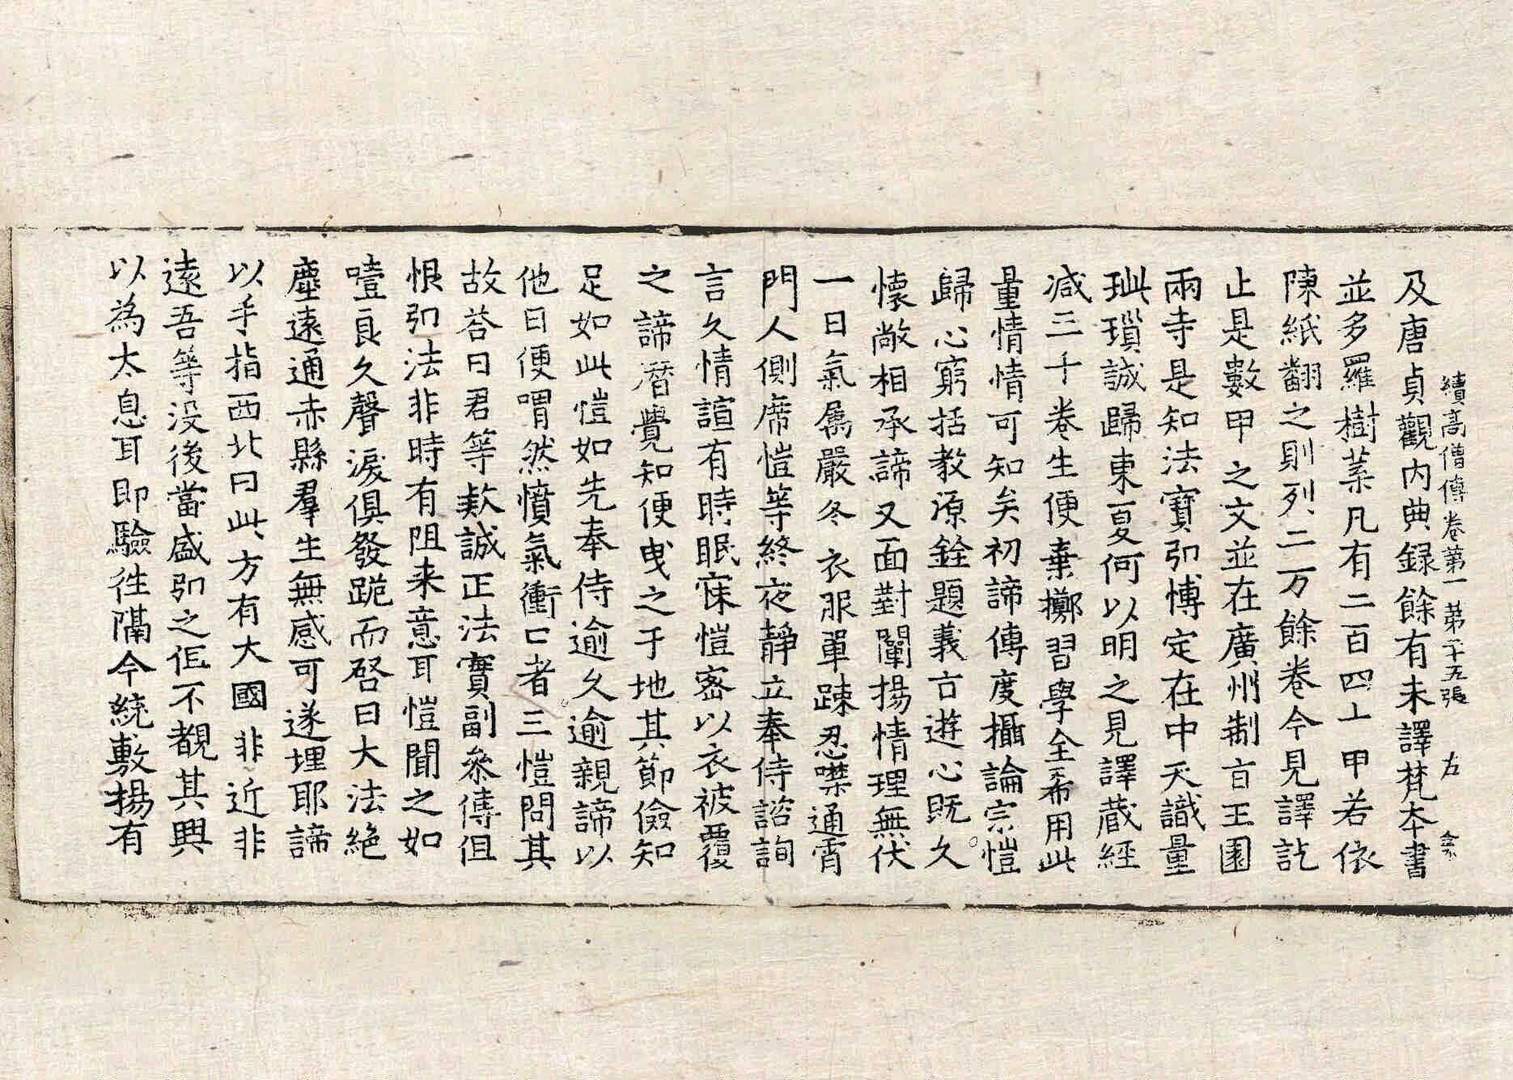 續高僧傳卷第一 第二十五張 左
及唐貞觀內典録餘有未譯梵本書
並多羅樹葉凡有二百四十甲若依
陳紙翻之則列二万餘卷今見譯訖
止是數甲之文並在廣州制旨王園
兩寺是知法寶弘博定在中天識量
玼瑣誠歸東夏何以明之見譯藏經
減三千卷生便棄擲習學全希用此
量情情可知矣初諦傳度攝論宗愷
歸心窮括教源銓題義旨遊心既久
懷敞相承諦又面對闡揚情理無伏
一日氣屬嚴冬衣服單踈忍噤通霄
門人側席愷等終夜靜立奉侍諮詢
言久情諠有時眠寐愷密以衣被覆
之諦潛覺知便曳之于地其節儉知
足如此愷如先奉侍逾久逾親諦以
他日便喟然憤氣衝口者三愷問其
故荅曰君等款誠正法實副叅傳但
恨弘法非時有阻来意耳愷聞之如
噎良久聲淚俱發跪而啓曰大法絶
塵遠通赤縣羣生無感可遂埋耶諦
以手指西北曰此方有大國非近非
遠吾等没後當盛弘之但不覩其興
以為太息耳即驗徃隔今統敷揚有